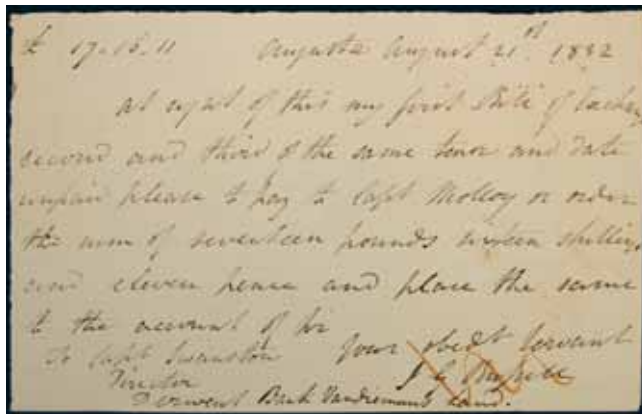 £ 17.16.11 Augusta August 21st. 1832
At sight of this my first Bill of Exchang
second and third of the same tenor and date
unpaid please to pay to Capt Molloy or order
the sum of seventeen pounds sixteen shillings
and eleven pence and place the same
to the account of Sir
To Capt Swanston your obedt servant
Director J G
Derwent Bank Vandiemans Land.